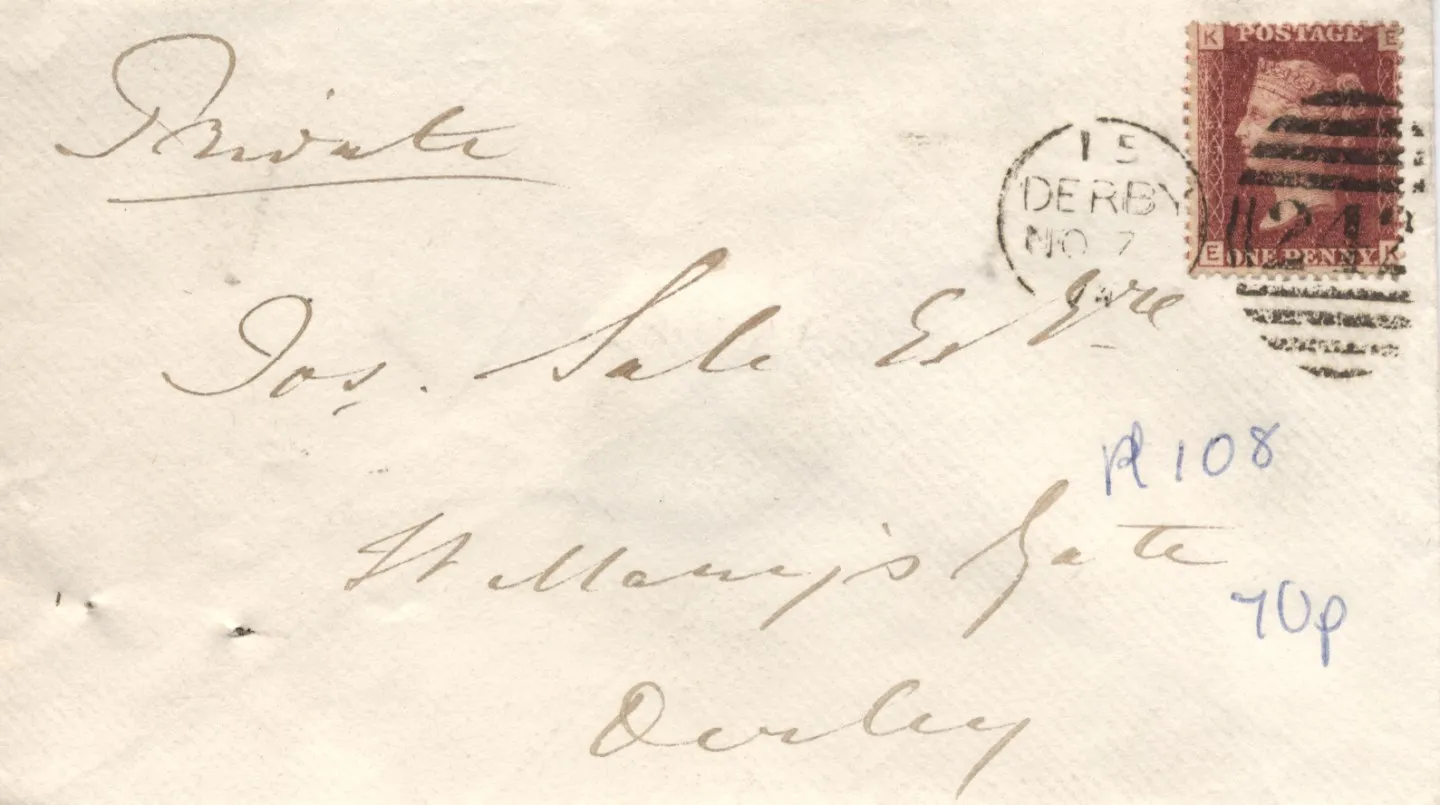 Private
K POSTAGE E
E ONE PENNY K
15
DERBY
NO 7
Jos. Sale Esqre
Pl 108
St Mary's Gate
70p
Derby